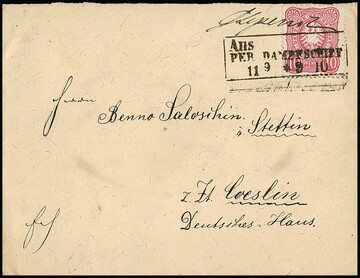 Aus
PER DAMPFSCHIFF
11 9 * 9 10
10
Herrn
Benno Saloschin,
Stettin
z. Zt. Coeslin
Deutsches-Haus.